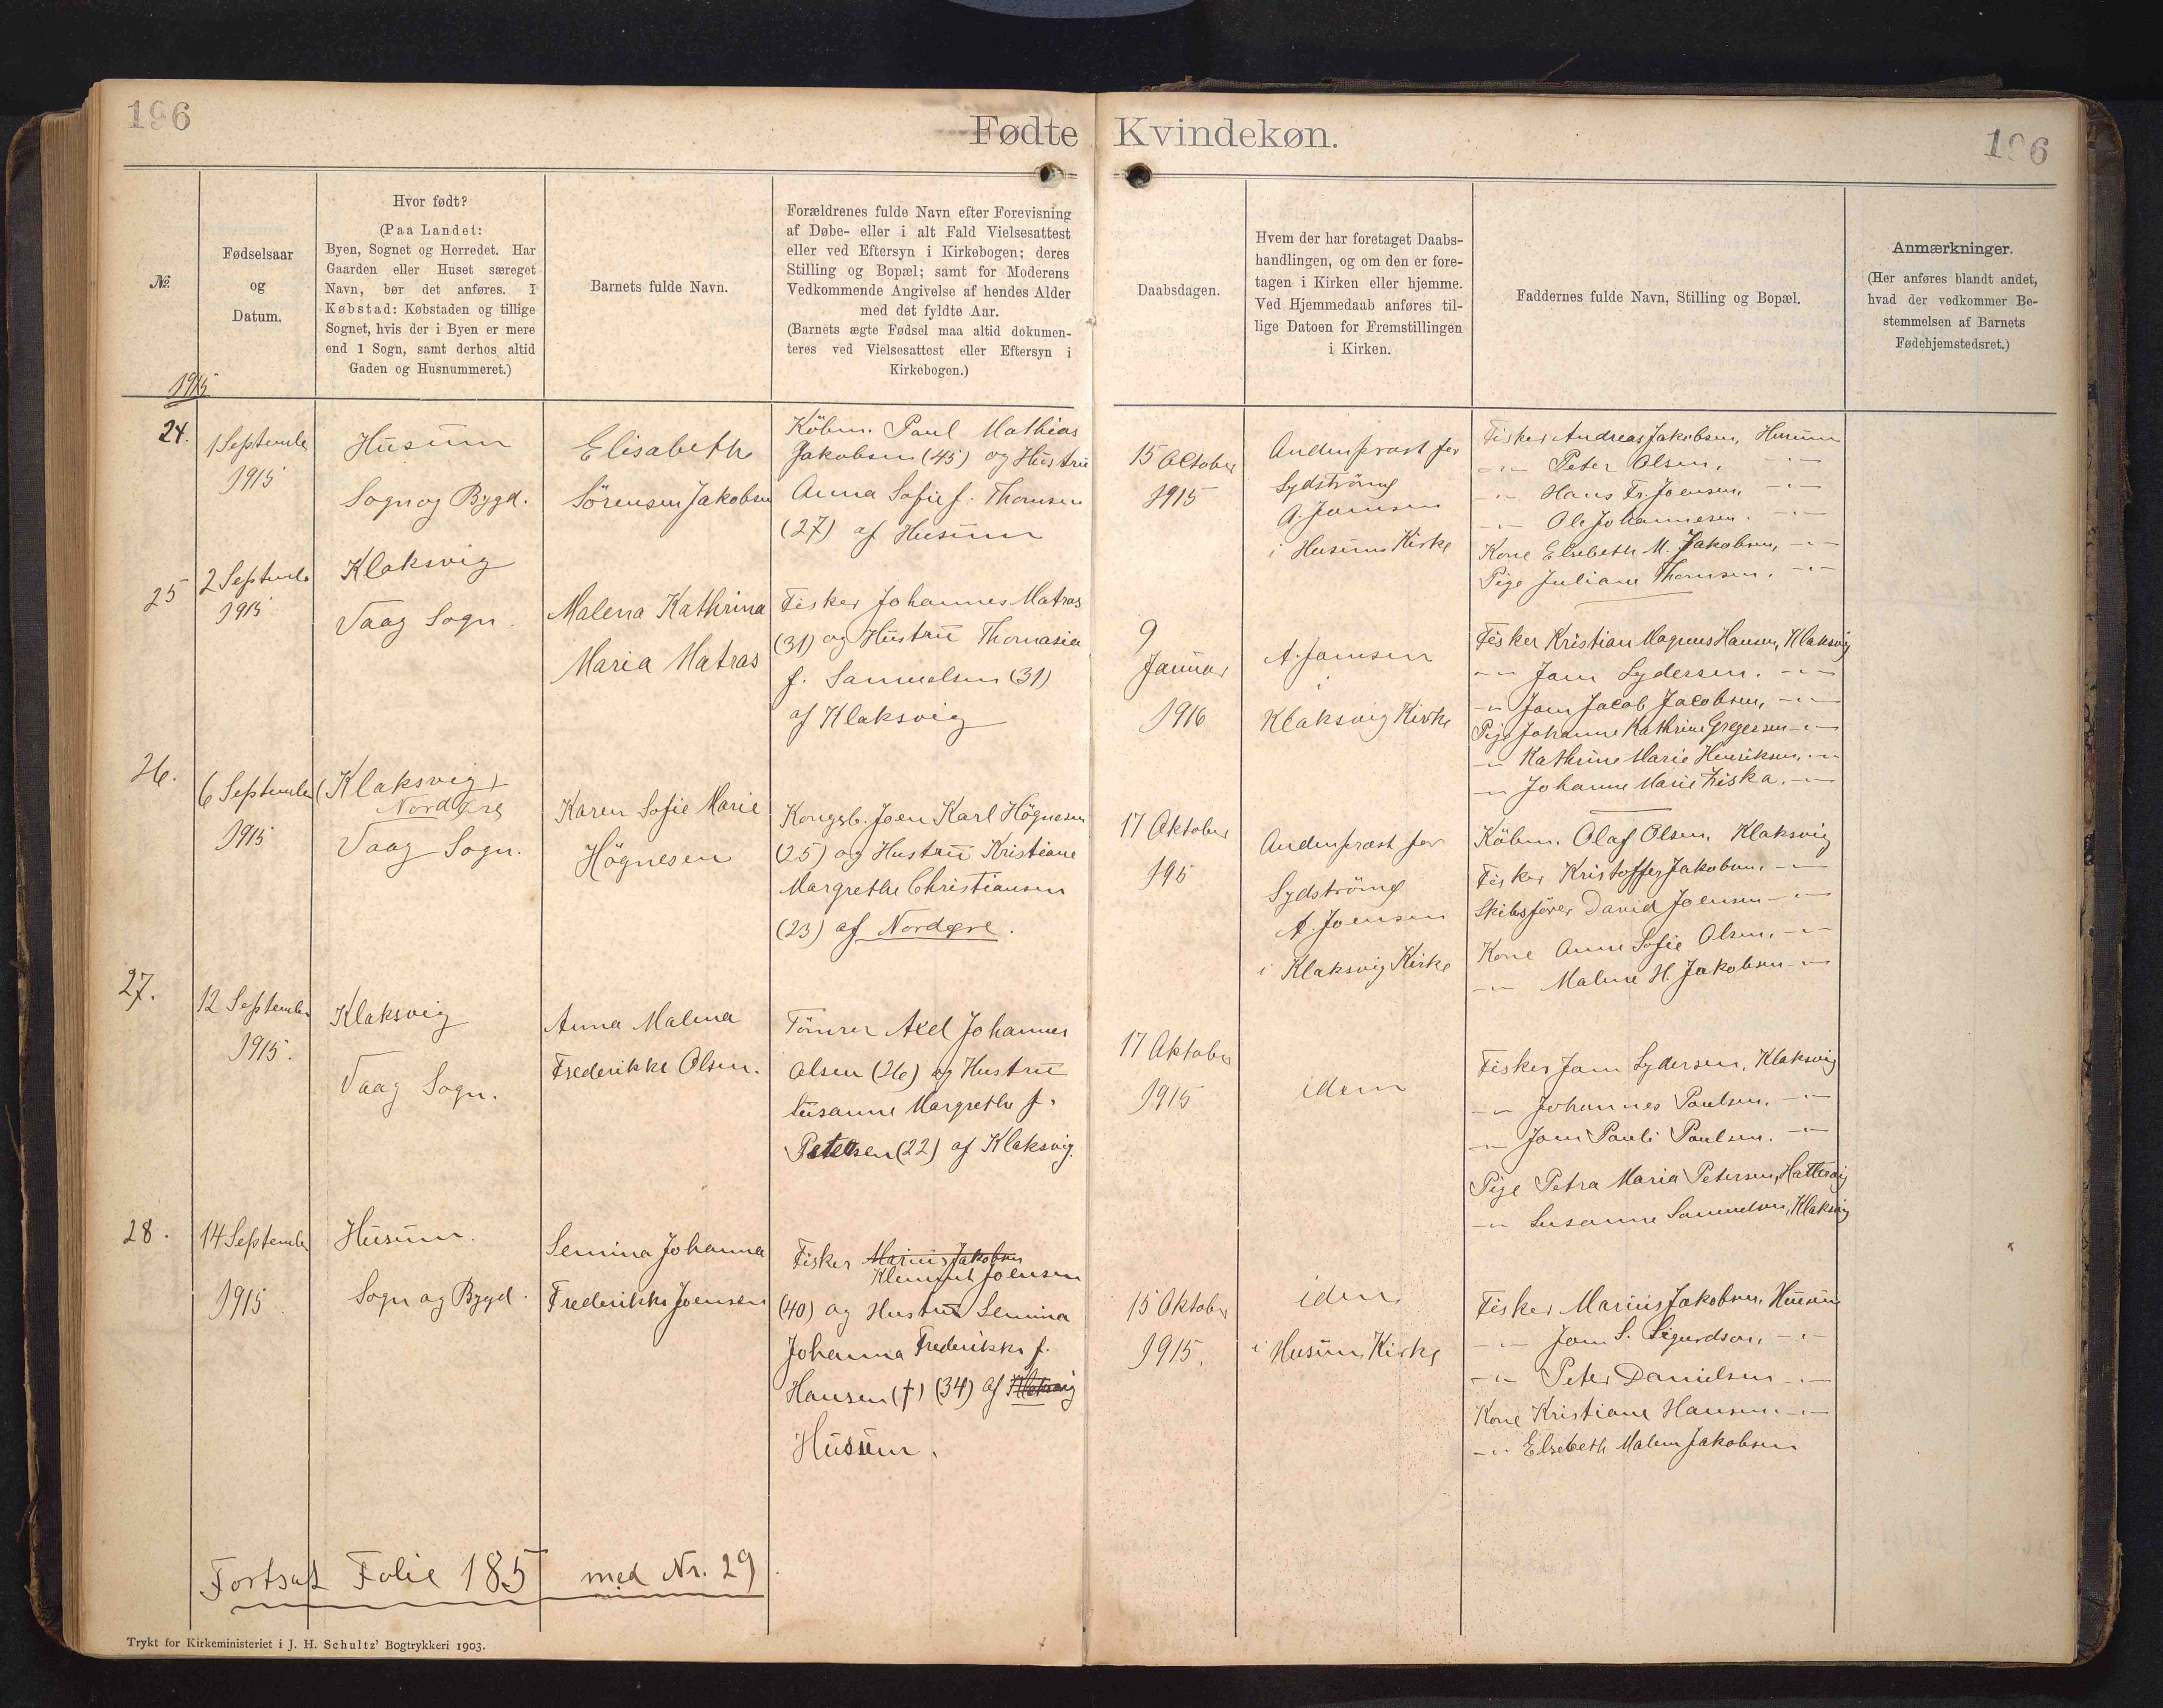 196
Fødte Kvindekøn.
196
№.
Fødselsaar
og
Datum.
Hvor født?
(Paa Landet:
Byen, Sognet og Herredet. Har
Gaarden eller Huset særeget
Navn, bør det anføres. I
Købstad: Købstaden og tillige
Sognet, hvis der i Byen er mere
end 1 Sogn, samt derhos altid
Gaden og Husnummeret.)
Barnets fulde Navn.
Forældrenes fulde Navn efter Forevisning
af Døbe- eller i alt Fald Vielsesattest
eller ved Eftersyn i Kirkebogen; deres
Stilling og Bopæl; samt for Moderens
Vedkommende Angivelse af hendes Alder
med det fyldte Aar.
(Barnets ægte Fødsel maa altid dokumen-
teres ved Vielsesattest eller Eftersyn i
Kirkebogen.)
Daabsdagen.
Hvem der har foretaget Daabs-
handlingen, og om den er fore-
tagen i Kirken eller hjemme.
Ved Hjemmedaab anføres til-
lige Datoen for Fremstillingen
i Kirken.
Faddernes fulde Navn, Stilling og Bopæl.
Anmærkninger.
(Her anføres blandt andet,
hvad der vedkommer Be-
stemmelsen af Barnets
Fødehjemstedsret.)
1915
24.
1 September
1915
Husum
Sogn og Bygd.
Elisabeth
Sörensen Jakobsen
Köbm. Paul Mathias
Jakobsen (45) og Hustru
Anna Sofie f. Thomsen
(27) af Husum
15 October
1915
Andenpræst for
Sydströmø
A. Joensen
i Husum Kirke
Fisker Andreas Jakobsen, Husum
-"- Peter Olsen, -"-
-"- Hans Fr. Joensen, -"-
-"- Ole Johannesen. -"-
Kone Elsebeth M. Jakobsen, -"-
Pige Juliane Thomsen. -"-
25
2 September
1915
Klaksvig
Vaag Sogn.
Malena Kathrina
Maria Matras
Fisker Johannes Matras
(31) og Hustru Thomasia
f. Samuelsen (31)
af Klaksvig
9
Januar
1916
A. Joensen
i
Klaksvig Kirke
Fisker Kristian Magnus Hansen, Klaksvig
-"- Joen Lydersen. -"-
-"- Joen Jacob Jacobsen, -"-
Pige Johanne Kathrine Gregersen -"-
-"- Kathrine Marie Henriksen, -"-
-"- Johanne Marie Ziska. -"-
26.
6 September
1915
(Klaksvig)
Nordøre
Vaag Sogn.
Karen Sofie Marie
Högnesen
Kongsb. Joen Karl Högnesen
(25) og Hustru Kristiane
Margrethe Christiansen
(23) af Nordøre.
17 Oktober
195
Andenpræst for
Sydströmø
A. Joensen
i Klaksvig Kirke
Köbm. Olaf Olsen, Klaksvig
Fisker Kristoffer Jakobsen. -"-
Skibsfører David Joensen -"-
Kone Anne Sofie Olsen, -"-
-"- Malene H. Jakobsen -"-
27.
12 September
1915.
Klaksvig
Vaag Sogn.
Anna Malena
Frederikke Olsen.
Tömrer Axel Johannes
Olsen (26) og Hustru
Susanne Margrethe f.
Petersen (22) af Klaksvig.
17 Oktober
1915
idem
Fisker Joen Lydersen, Klaksvig
-"- Johannes Poulsen. -"-
-"- Joen Pauli Poulsen. -"-
Pige Petra Maria Petersen, Hattervig
-"- Susanne Samuelsen, Klaksvig
28.
14 September
1915
Husum.
Sogn og Bygd.
Semina Johanna
Frederikke Joensen
Fisker Marius Jakobsen
Klement Joensen
(40) og Hustru Semina
Johanna Frederikke f.
Hansen (†) (34) af Klaksvig
Husum.
15 Oktober
1915.
idem
i Husum Kirke
Fisker Marius Jakobsen, Husum
-"- Joen S. Sigurdson, -"-
-"- Peter Danielsen -"-
Kone Kristiane Hansen. -"-
-"- Elsebeth Malene Jakobsen
Fortsat Folie 185 med Nr. 29
Trykt for Kirkeministeriet i J. H. Schultz' Bogtrykkeri 1903.